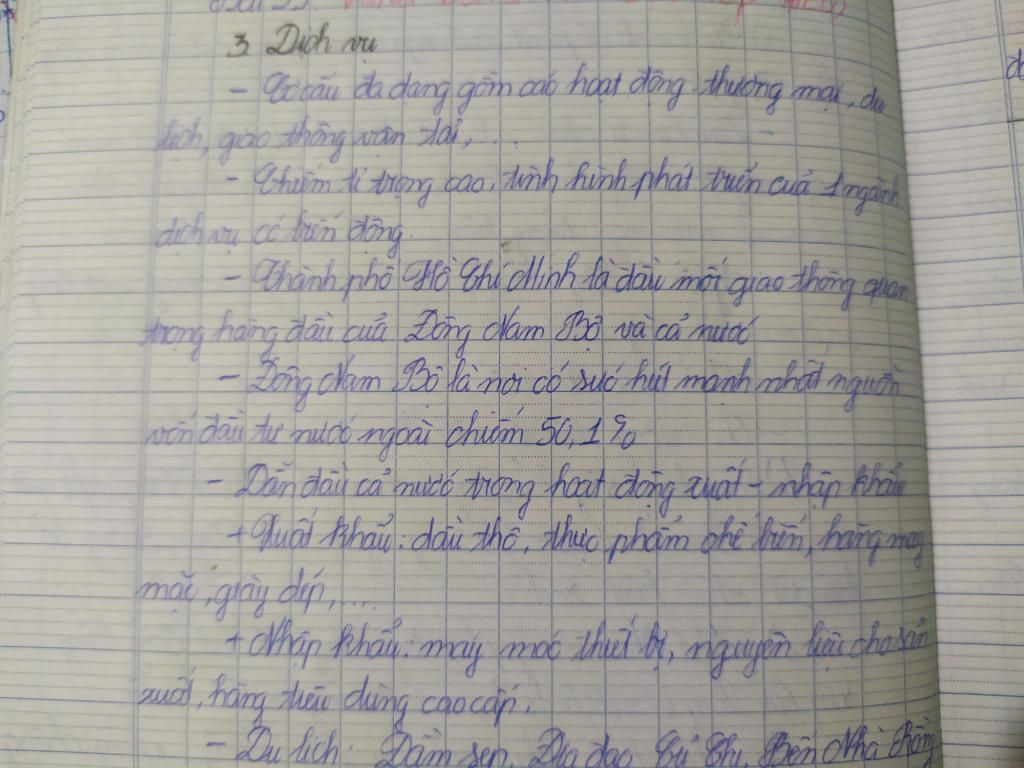 3. Dịch vụ
- Cơ cấu đa dạng gồm các hoạt động thương mại, du
lịch, giao thông vận tải, ...
- Chiếm tỉ trọng cao, tình hình phát triển của 1 ngành
dịch vụ có biến động.
- Thành phố Hồ Chí Minh là đầu mối giao thông quan
trọng hàng đầu của Đông Nam Bộ và cả nước
- Đông Nam Bộ là nơi có sức hút mạnh nhất nguồn
vốn đầu tư nước ngoài chiếm 50,1%
- Dẫn đầu cả nước trong hoạt động xuất - nhập khẩu
+ Xuất khẩu: dầu thô, thực phẩm chế biến, hàng may
mặc, giày dép, ...
+ Nhập khẩu: máy móc thiết bị, nguyên liệu cho sản
xuất, hàng tiêu dùng cao cấp.
- Du lịch: Đầm sen, Địa đạo Củ Chi, Bến Nhà Rồng